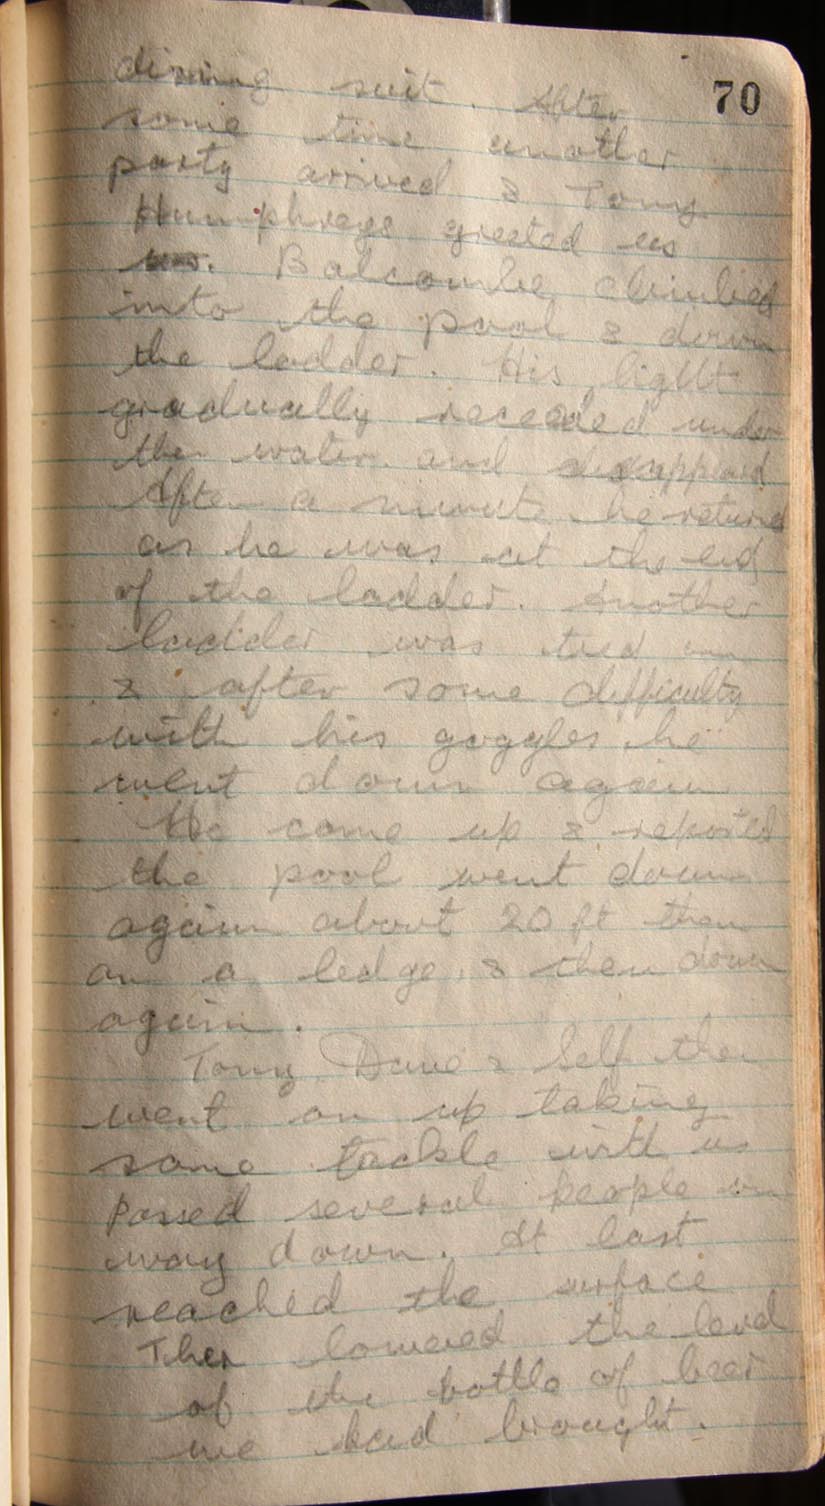 70
diving suit. After
some time another
party arrived & Tony
Humphreys greeted us
us. Balcombe climbed
into the pool & down
the ladder. His light
gradually receeded under
the water and disappeard
After a minute he returned
as he was at the end
of the ladder. Another
ladder was tied on
& after some difficulty
with his goggles he
went down again
He came up & reported
the pool went down
again about 20 ft then
on a ledge & then down
again.
Tony Dave & Self then
went on up taking
some tackle with us
Passed several people on
way down. At last
reached the surface
Then lowered the level
of the bottle of beer
we had brought.